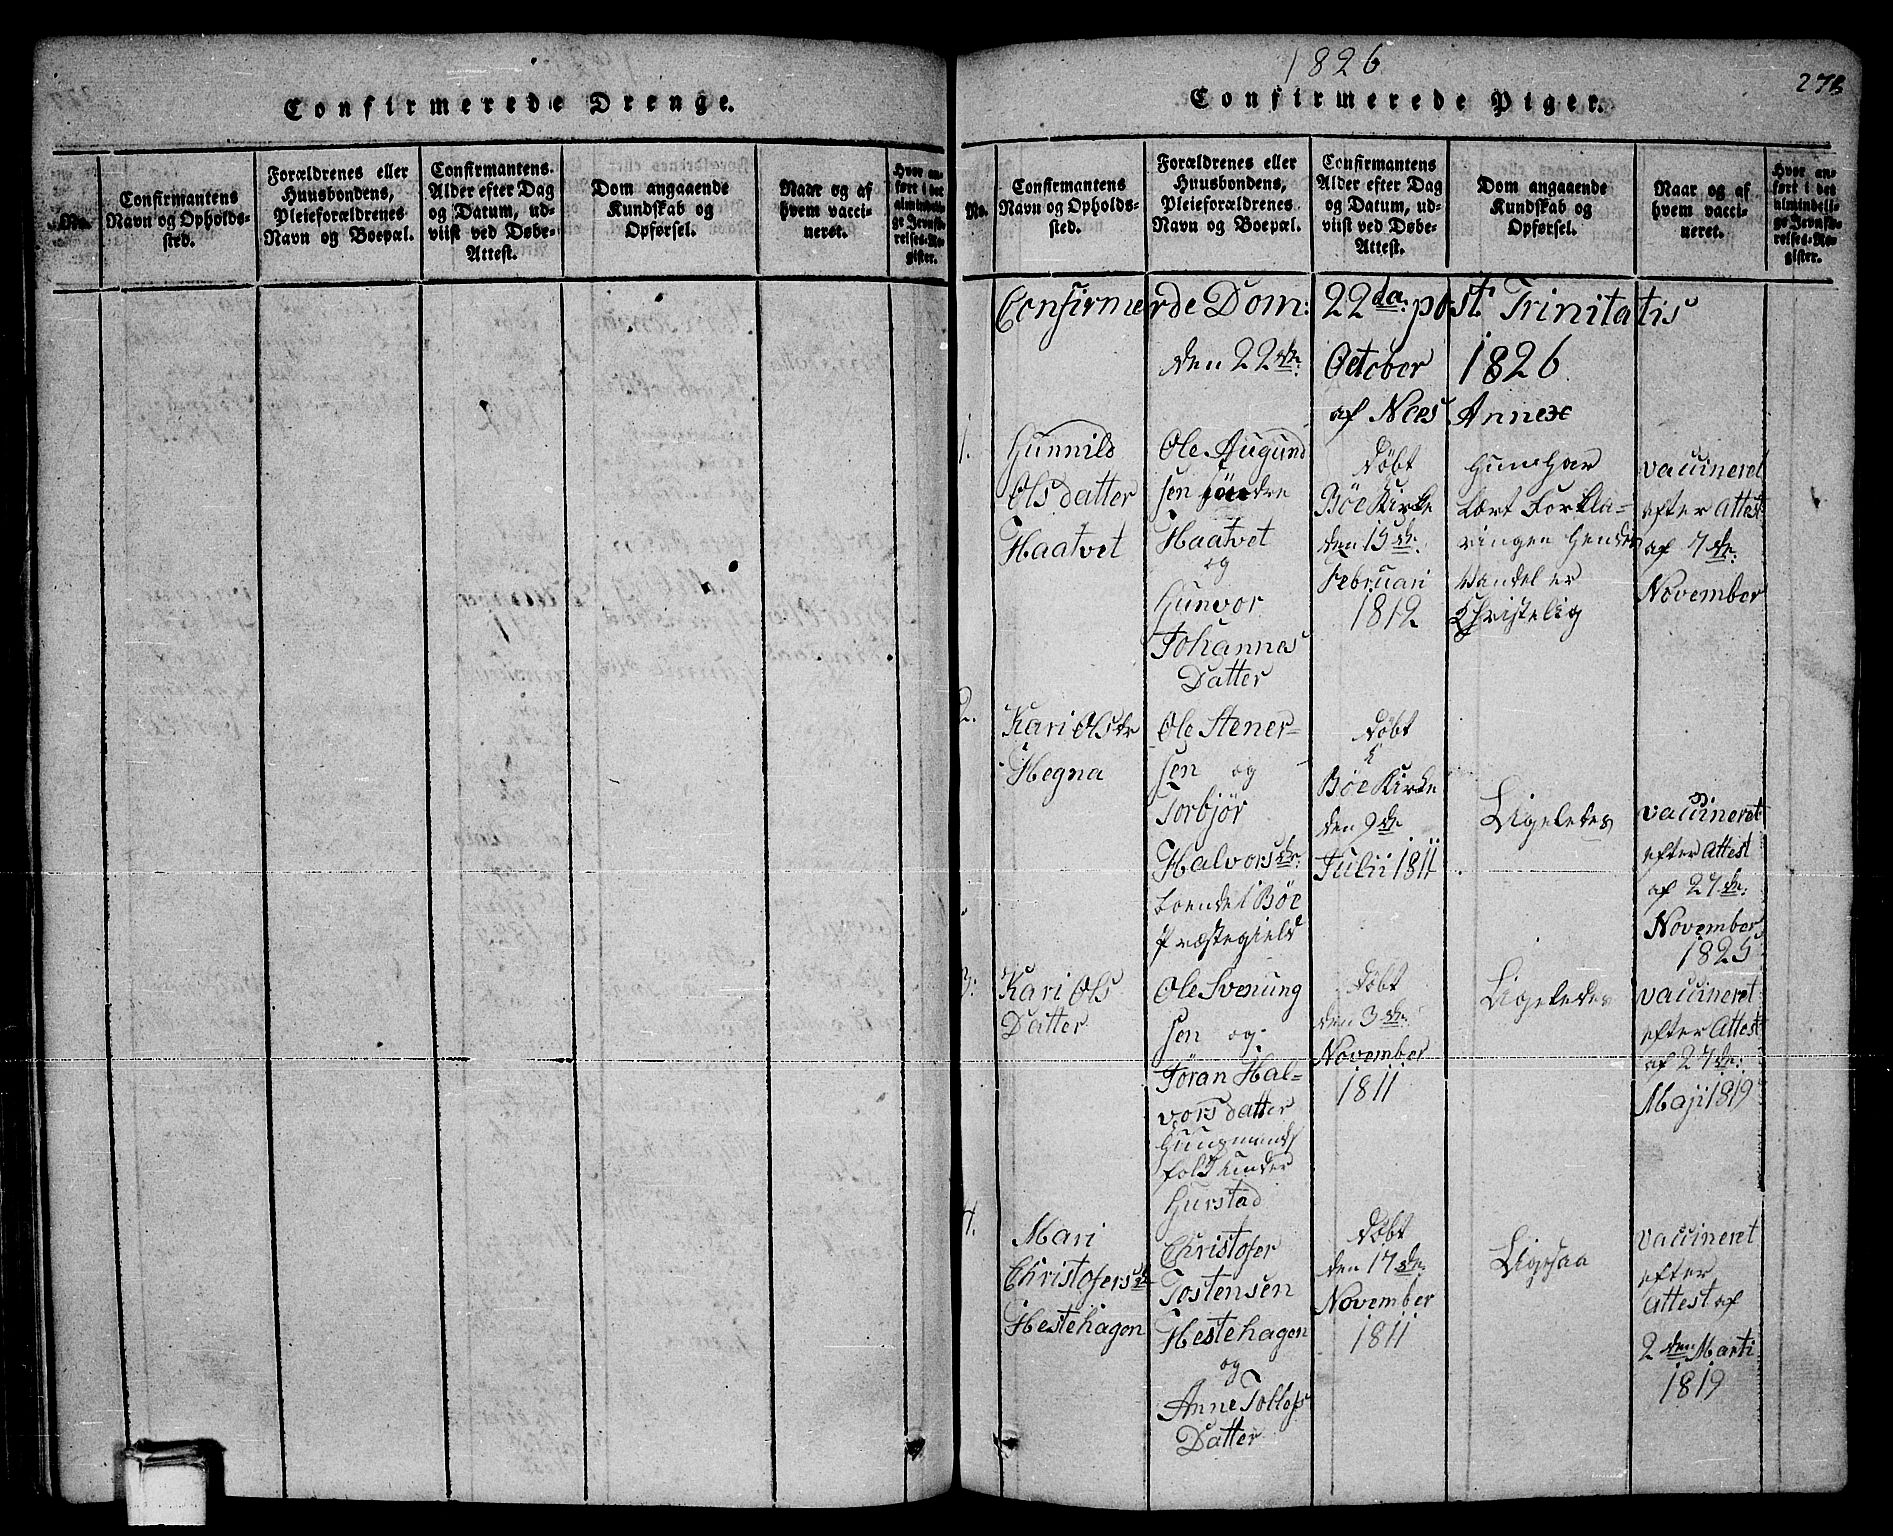 Confirmerede Drenge.
No.
Confirmantens Navn og Opholds-sted.
Forældrenes eller Huusbondens, Pleieforældrenes Navn og Boepæl.
Confirmantens Alder efter Dag og Datum, ud-viist ved Døbe-Attest.
Dom angaaende Kundskab og Opførsel.
Naar og af hvem vacci-neret.
Hvor an-ført i det almindeli-ge Jevnfø-relses-Re-gister.
1826
278
Confirmerede Piger.
No.
Confirmantens Navn og Opholds-sted.
Forældrenes eller Huusbondens, Pleieforældrenes Navn og Boepæl.
Confirmantens Alder efter Dag og Datum, ud-viist ved Døbe-Attest.
Dom angaaende Kundskab og Opførsel.
Naar og af hvem vacci-neret.
Hvor an-ført i det almindeli-ge Jevnfø-relses-Re-gister.
Confirmerede Dom: 22da. post Trinitatis
den 22de: October 1826
af Nees Annex
1.
Gunnild
Olsdatter
Haatvet
Ole Augund
sen søndre
Haatvet
og
Gunvor
Johannes
Datter
Døbt
Böe Kirke
den 15de.
Februari
1812
Hun har
lært Forkla=
ringen hendes
Vandel er
Christelig
vaccineret
efter Attest
af 7de:
November
2.
Kari Olsdr
Hegna
Ole Stener-
sen og
Torbjör
Halvorsdr:
boende i Böe
Præstegield
Døbt
i
Böe Kirke
den 9de
Julii 1811
Ligeledes
vaccineret
efter Attest
af 27de:
November
1825
3.
Kari Ols
Datter
Ole Svenung
sen og
Jöran Hal-
vors datter
Huusmands
folk under
Gurstad
Døbt
den 3de:
November
1811
Ligeledes
vaccineret
efter Attest
af 27de:
Maji 1819
4.
Mari
Christofersd
Hestehagen
Christofer
Tostensen
Hestehagen
og
Anne Tollefs
Datter
Døbt
den 17de:
November
1811
Ligesaa
vaccineret
efter
Attest af
2den Marti
1819